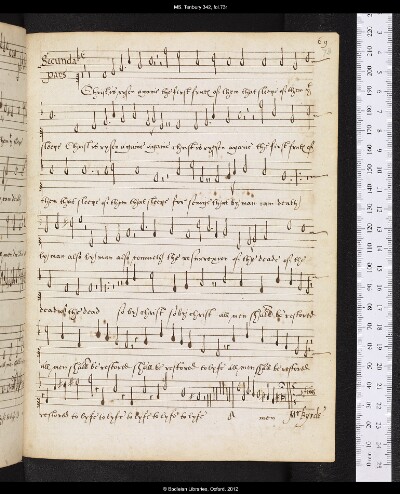 MS. Tenbury 342, fol.73r
69
Secunda
pars
Christ is rysen againe the first frute of them that sleepe of them yt
sleepe Christ is rysen againe againe christ is rysen againe the first frute of
them that sleepe of them that sleepe for seinge that by man cam death
by man also by man also commeth the resurrexion of the deade of the
deade of the dead so by christ so by christ all men shalbe restored
all men shalbe restored shalbe restored to lyfe all men shalbe restored
restored to lyfe to lyfe to lyfe to lyfe to lyfe A men Mr Byrde
© Bodleian Libraries, Oxford, 2012